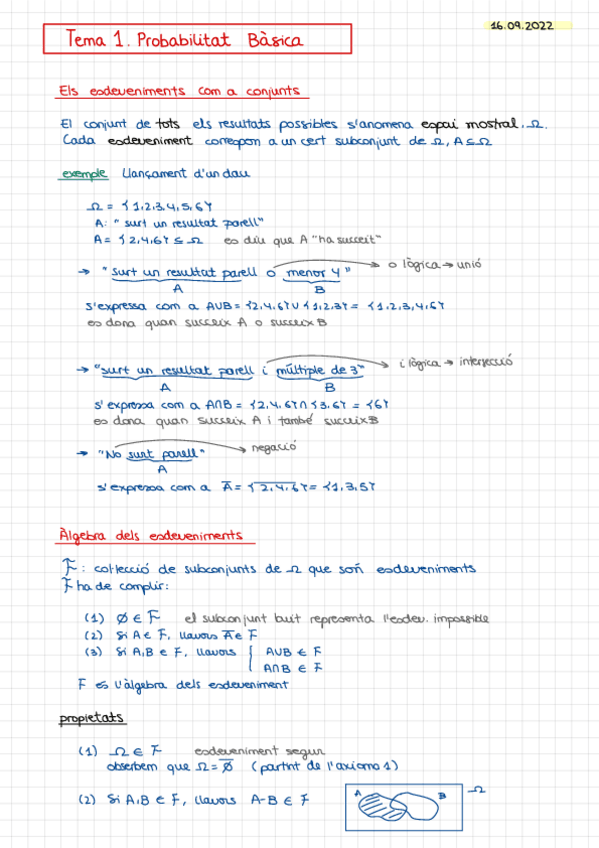 16.09.2022
Tema 1. Probabilitat Bàsica
Els esdeveniments com a conjunts
El conjunt de tots els resultats possibles s'anomena espai mostral, Ω.
Cada esdeveniment correspon a un cert subconjunt de Ω, A ⊆ Ω
exemple Llançament d'un dau
Ω = {1,2,3,4,5,6}
A: "surt un resultat parell"
A = {2,4,6} ⊆ Ω es diu que A "ha succeit"
→ "surt un resultat parell o menor 4" → o lògica → unió
A B
s'expressa com a A∪B = {2,4,6} ∪ {1,2,3} = {1,2,3,4,6}
es dona quan succeix A o succeix B
→ "surt un resultat parell i múltiple de 3" → i lògica → intersecció
A B
s'expressa com a A∩B = {2,4,6} ∩ {3,6} = {6}
es dona quan succeix A i també succeix B
→ "No surt parell" → negació
A
s'expressa com a A̅ = {2,4,6}̅ = {1,3,5}
Àlgebra dels esdeveniments
F: col·lecció de subconjunts de Ω que són esdeveniments
F ha de complir:
(1) ∅ ∈ F el subconjunt buit representa l'esdev. impossible
(2) Si A ∈ F, llavors A̅ ∈ F
(3) Si A,B ∈ F, llavors { A∪B ∈ F
A∩B ∈ F
F es l'àlgebra dels esdeveniment
propietats
(1) Ω ∈ F esdeveniment segur
observem que Ω = ∅̅ (partint de l'axioma 1)
(2) Si A,B ∈ F, llavors A-B ∈ F
A B Ω